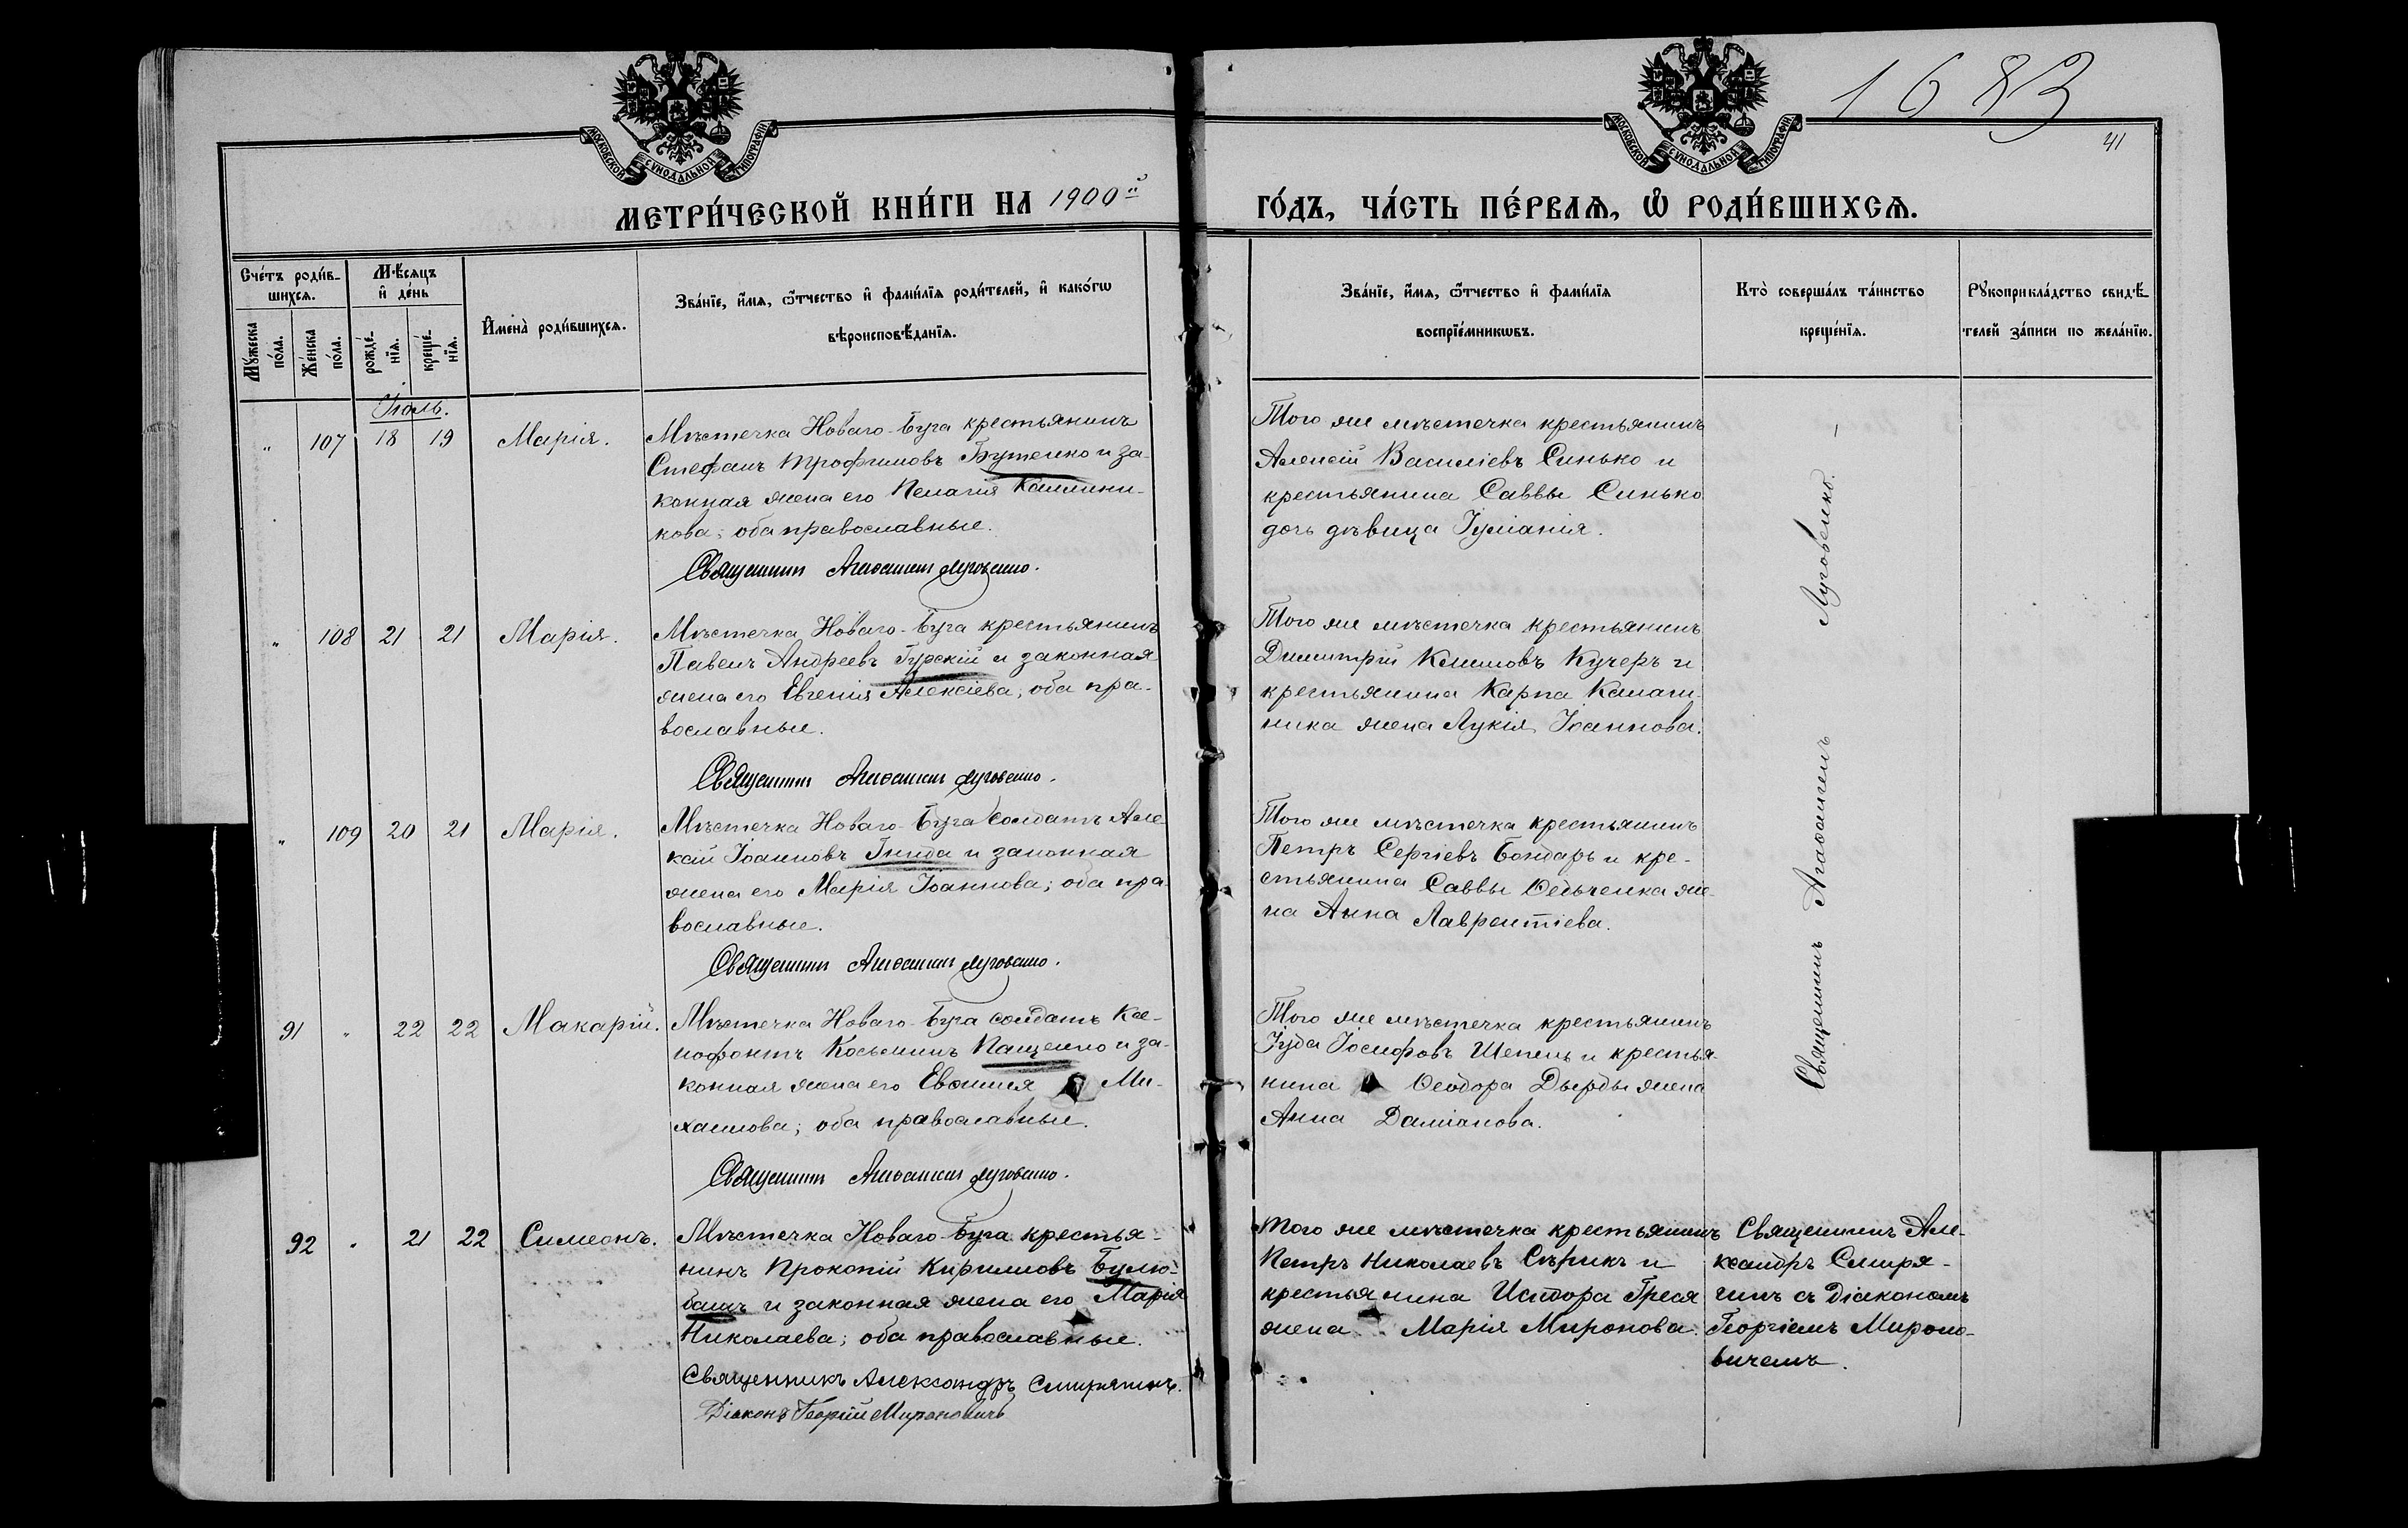 1683
41
МОСКОВСКОЙ СѴНОДАЛЬНОЙ ТИПОГРАФІИ
МОСКОВСКОЙ СѴНОДАЛЬНОЙ ТИПОГРАФІИ
МЕТРИ́ЧЕСКОЙ КНИ́ГИ НА 1900й
ГО́ДЪ, ЧА́СТЬ ПЕ́РВАѦ, Ѽ РОДИ́ВШИХСѦ.
Сче́тъ роди́в-
шихсѧ.
Мꙋ́жеска по́ла.
Же́нска по́ла.
Мѣ́сѧцъ
и҆ де́нь
рожде́-нїѧ.
креще́-нїѧ.
И҆мена̀ роди́вшихсѧ.
Зва́нїе, и҆́мѧ, ѻ҆́тчество и҆ фами́лїѧ роди́телей, и҆ како́гѡ
вѣроисповѣ́данїѧ.
Зва́нїе, и҆́мѧ, ѻ҆́тчество и҆ фами́лїѧ
воспрїе́мникѡвъ.
Кто̀ соверша́лъ та́инство
креще́нїѧ.
Рꙋкоприкла́дство свидѣ́-
телей за́писи по жела́нїю.
Іюль.
" 107 18 19 Марія.
Мѣстечка Новаго-Буга крестьянинъ
Стефанъ Трофимовъ Бутенко и за-
конная жена его Пелагія Каллини-
кова; оба православные.
Священникъ Агаѳангелъ Луговенко.
Того же мѣстечка крестьянинъ
Алексій Василіевъ Синько и
крестьянина Саввы Синько
дочь дѣвица Іуліанія.
" 108 21 21 Марія.
Мѣстечка Новаго-Буга крестьянинъ
Павелъ Андреевъ Гурскій и законная
жена его Евгенія Алексіева; оба пра-
вославные.
Священникъ Агаѳангелъ Луговенко.
Того же мѣстечка крестьянинъ
Димитрій Климовъ Кучеръ и
крестьянина Карпа Калаш-
ника жена Лукія Іоаннова.
" 109 20 21 Марія.
Мѣстечка Новаго-Буга солдатъ Але
ксій Іоанновъ Гнида и законная
жена его Марія Іоаннова; оба пра-
вославные.
Священникъ Агаѳангелъ Луговенко.
Того же мѣстечка крестьянинъ
Петръ Сергіевъ Бондарь и кре-
стьянина Саввы Ѳедьченка же-
на Анна Лаврентіева.
91 " 22 22 Макарій.
Мѣстечка Новаго-Буга солдатъ Ксе-
нофонтъ Косьминъ Пащенко и за-
конная жена его Евѳимія Ми-
хаилова; оба православные.
Священникъ Агаѳангелъ Луговенко.
Того же мѣстечка крестьянинъ
Іуда Іосифовъ Шепель и крестья-
нина Ѳеодора Дырды жена
Анна Даміанова.
Священникъ Агаѳангелъ Луговенко.
92 " 21 22 Симеонъ.
Мѣстечка Новаго-Буга крестья-
нинъ Прокопій Кирилловъ Було-
башъ и законная жена его Марія
Николаева; оба православные.
Священникъ Александръ Смирягинъ.
Діаконъ Георгій Мироновичъ
Того же мѣстечка крестьянинъ
Петръ Николаевъ Сѣрикъ и
крестьянина Исидора Греся
жена Марія Миронова.
Священникъ Але-
ксандръ Смиря-
гинъ съ Діакономъ
Георгіемъ Мироно-
вичемъ.